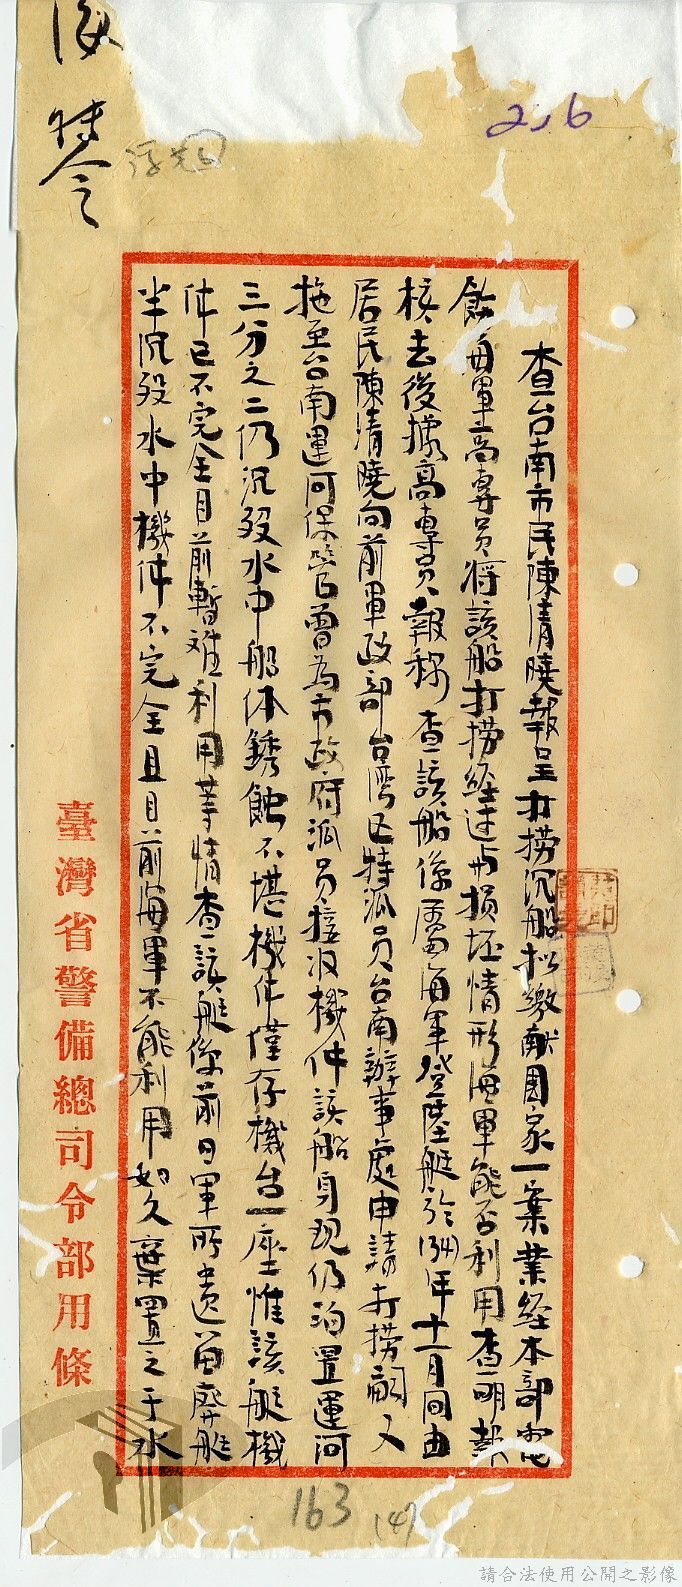 查台南市民陳清曉報呈打撈沉船拟繳献國家一案業経本部電
飭海軍高專員將該船打撈経过与損坯情形海軍能否利用查明報
核去後據高專員報稱查該船係屬海軍登陸艇於(34)年十一月間由
居民陳清曉向前軍政部台湾区特派員台南辦事處申請打撈嗣又
拖至台南運河保管曾為市政府派員接收機件該船身現仍泊置運河
三分之二仍沉殁水中船体銹蝕不堪機件僅存機台一座惟該艇機
件已不完全目前暫难利用等情查該艇係前日軍所遺留廢艇
半沉殁水中機件不完全且目前海軍不能利用如久棄置之于水
臺灣省警備總司令部用條
特令
206
163
(4)
請合法使用公開之影像